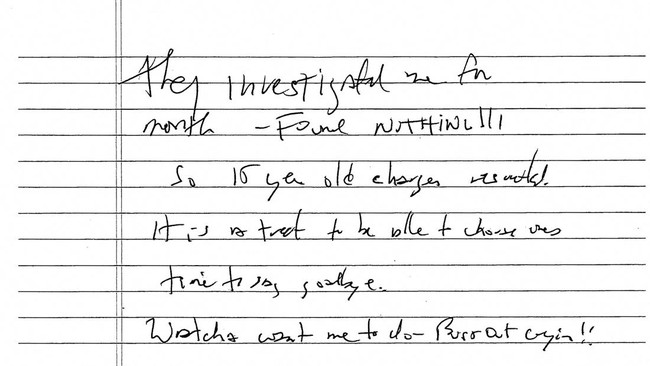 They investigated me for
month - Found NOTHING!!!
So 15 year old charges
It is a treat to be able to choose ones
time to say goodbye.
Watcha want me to do - out cryin!!